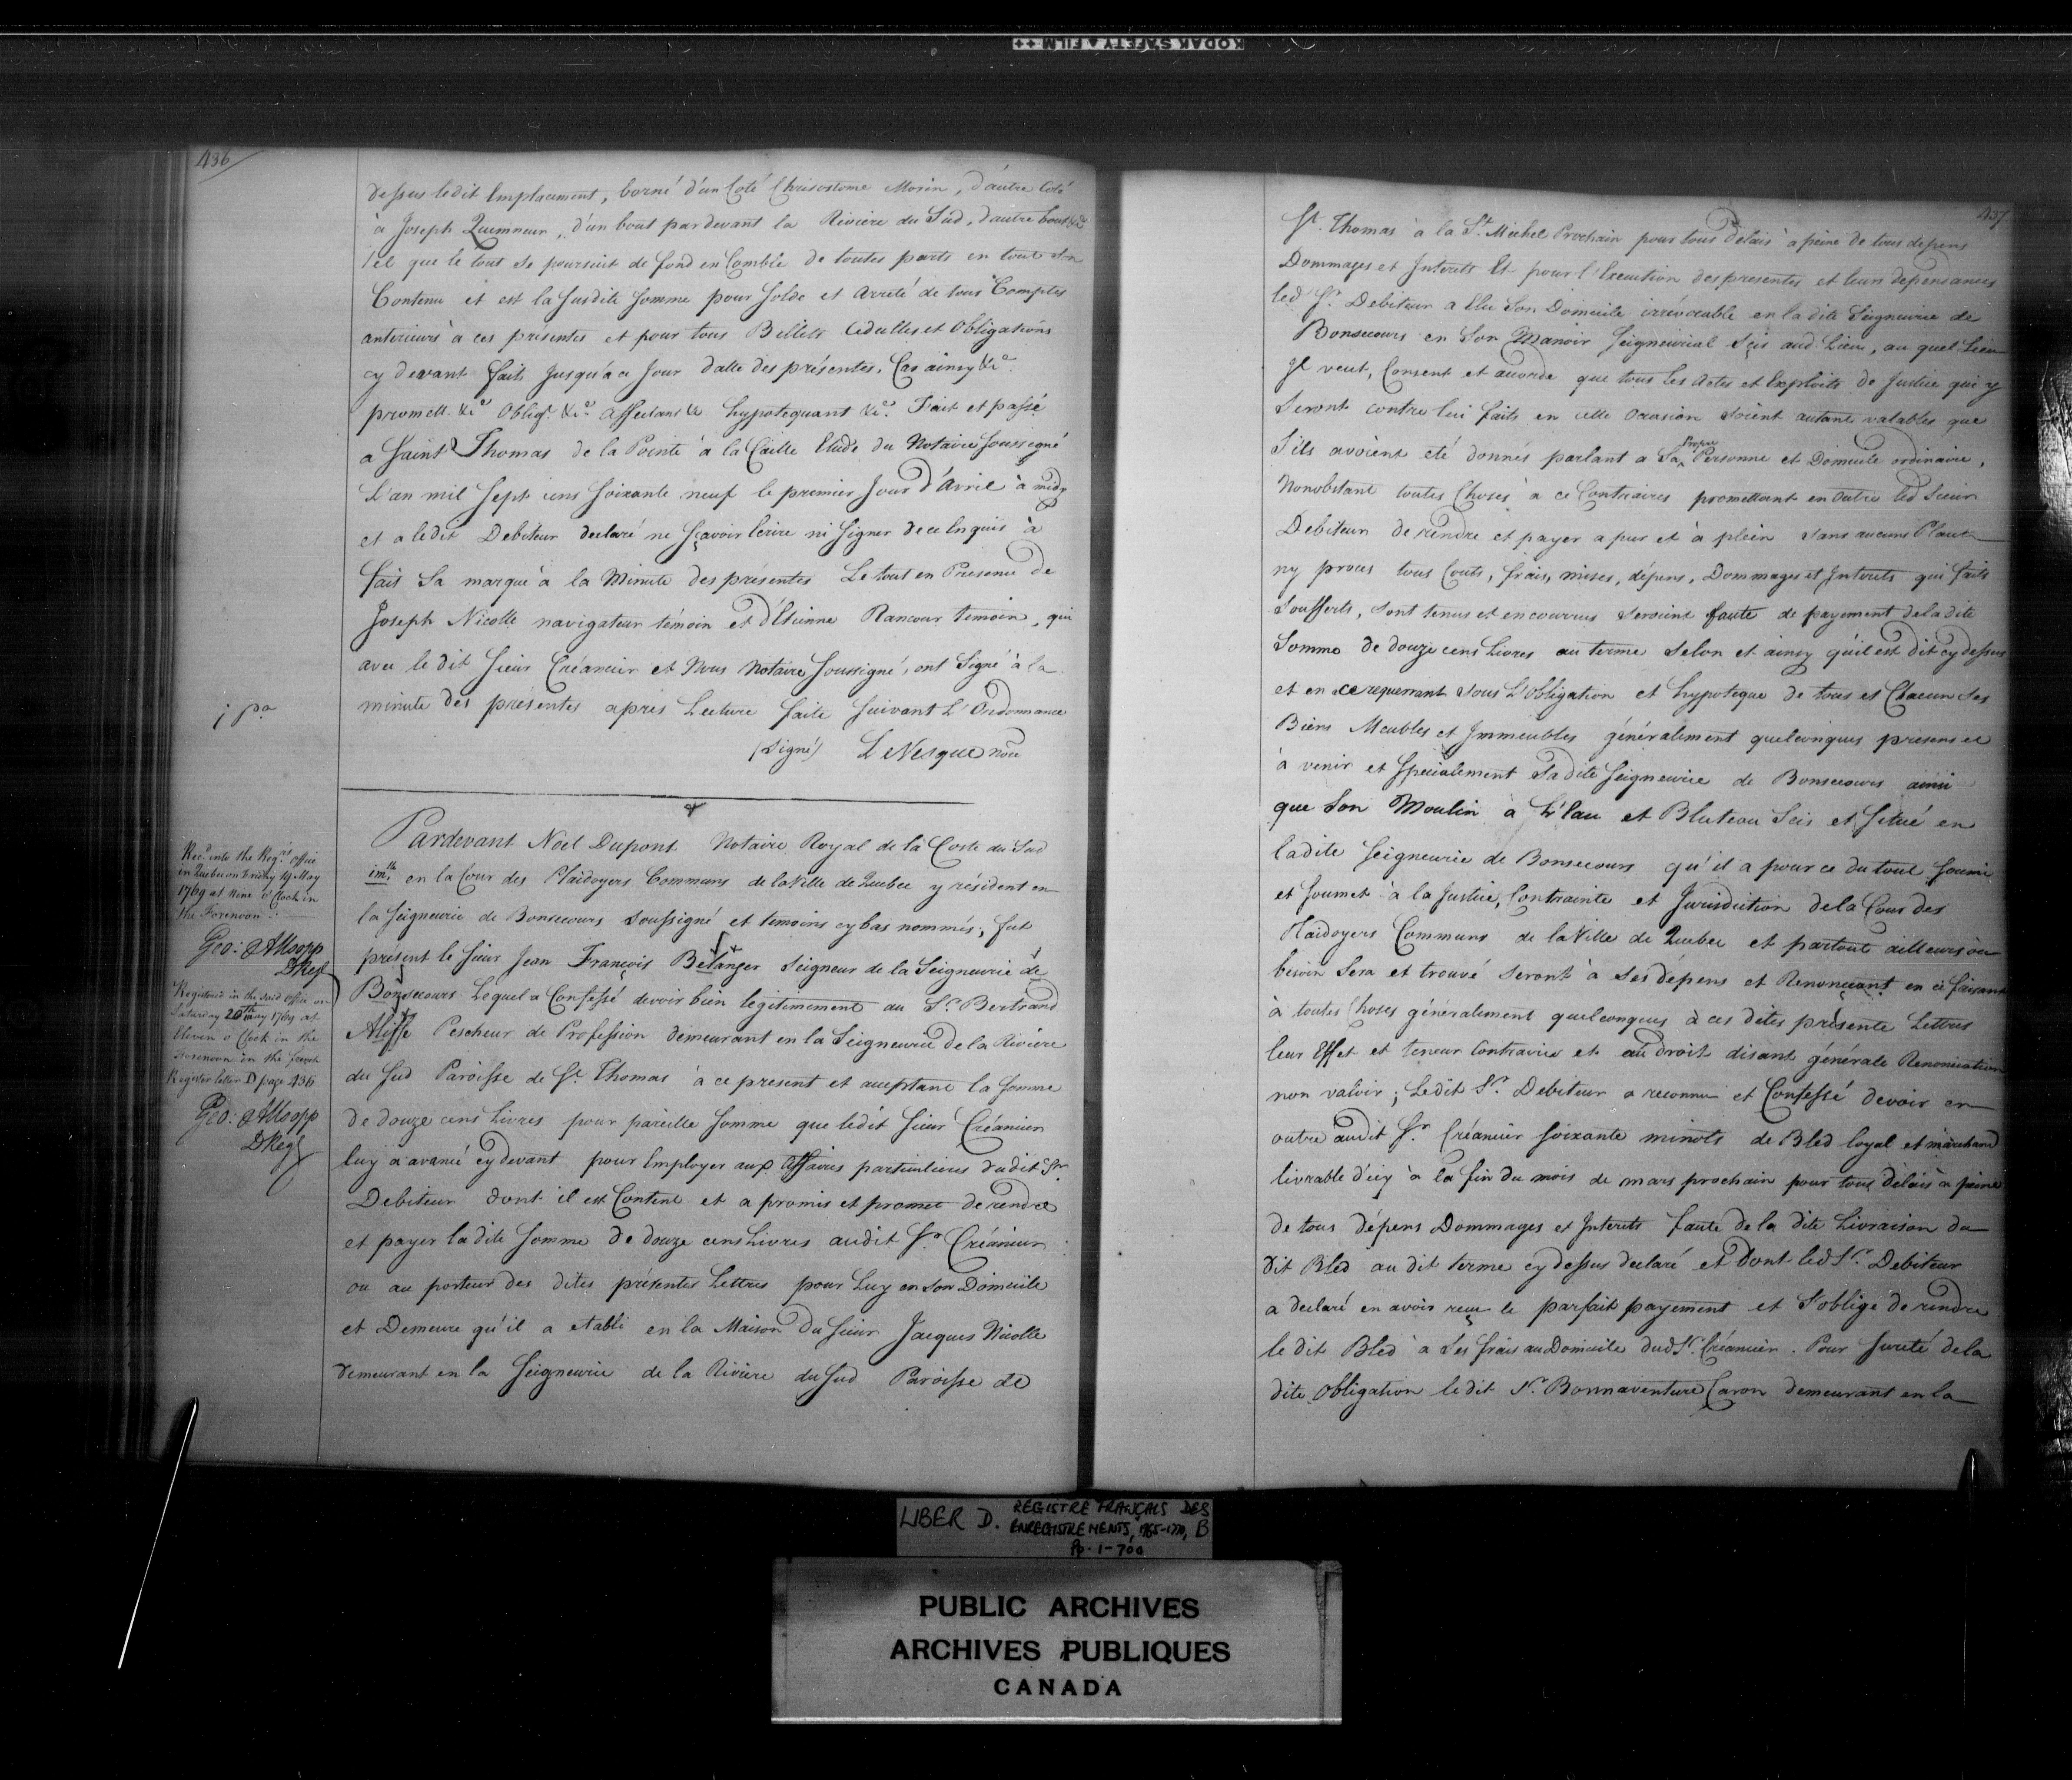 KODAK SAFETY FILM
436
dessus ledit Emplacement, borné d'un Coté Chrisostome Morin, d'autre Coté
à Joseph Quemneur, d'un bout pardevant la Riviere du Sud, d'autre bout &ca
tel que le tout se poursuit de fond en Comble de toutes parts en tout son
Contenu et est la susdite somme pour solde et arreté de tous Comptes
anterieurs à ces présentes et pour tous Billets Cedulles et Obligations
cy devant faits Jusqu'à ce Jour datte des présentes. Car ainsy &ca
promett. &ca Oblig.t &ca affectant &c hypotequant &ca. Fait et passé
a Saint Thomas de la Pointe à la Caille Etude du Notaire soussigné
L'an mil sept cens soixante neuf le premier Jour d'Avril à midy
et a ledit Debiteur declaré ne sçavoir Ecrire ni signer de ce Enquis à
fait sa marque à la Minute des présentes Le tout en Presence de
Joseph Nicolle navigateur témoin et d'Etienne Rancour temoin, qui
avec le dit Sieur Créancier et Nous Notaire soussigné, ont Signé à la
minute des présentes apres Lecture faite suivant L'Ordonnance
(Signé) LeVesque nore
Pardevant Noel Dupont Notaire Royal de la Coste du Sud
im.le en la Cour des Plaidoyers Communs de la Ville de Quebec y résident en
la Seigneurie de Bonsecours soussigné et temoins cy bas nommés; fut
présent le Sieur Jean François Belanger Seigneur de la Seigneurie de
Bonsecours Lequel a Confessé devoir bien legitimement au Sr. Bertrand
Alisse Pescheur de Profession demeurant en la Seigneurie de la Riviere
du Sud Paroisse de St. Thomas à ce present et acceptant la somme
de douze cens Livres pour pareille somme que ledit Sieur Créancier
luy a avancé cy devant pour Employer aux affaires particulieres dudit Sr.
Debiteur dont il est Content et a promis et promet de rendre
et payer ladite somme de douze cens Livres audit Sr. Créancier
ou au porteur des dites présentes Lettres pour Luy en son Domicile
et Demeure qu'il a etabli en la Maison du Sieur Jacques Nicolle
demeurant en la Seigneurie de la Riviere du Sud Paroisse de
Rec.d into the Reg.rs Office
in Quebec on Friday 19 May
1769 at Nine o'Clock in
the Forenoon
Geo: Allsopp
DReg.
Registered in the said Office on
Saturday 20th May 1769 at
Eleven o'Clock in the
Forenoon in the french
Register letter D page 436
Geo: Allsopp
DReg.
437
St. Thomas à la St. Michel Prochain pour tous delais à peine de tous depens
Dommages et Interets Et pour l'Execution des presentes et leurs dependances
led Sr. Debiteur a Elu Son Domicile irrévocable en la dite Seigneurie de
Bonsecours en Son Manoir Seigneurial Scis aud Lieu, au quel Lieu
Il veut, Consent et accorde que tous les Actes et Exploits de Justice qui y
Seront contre lui faits en cette Occasion soient autant valables que
S'ils avoient eté donnés parlant a Sa Propre Personne et Domicile ordinaire,
Nonobstant toutes Choses à ce Contraires promettant en Outre led Sieur
Debiteur de rendre et payer a pur et à plein sans aucuns Plaint
ny proces tous Couts, frais, mises, dépens, Dommages et Interets qui faits
Soufferts, sont tenus et encourrus seroient faute de payement de la dite
Somme de douze cens Livres au terme selon et ainsy qu'il est dit cy dessus
et en ce requerrant sous L'Obligation et hypoteque de tous et Chacun ses
Biens Meubles et Immeubles généralement quelconques presens et
à venir et Specialement sadite Seigneurie de Bonsecours ainsi
que Son Moulin à L'Eau et Bluteau Scis et Situé en
ladite Seigneurie de Bonsecours qu'il a pour ce du tout soumi
et soumet à la Justice, Contrainte et Jurisdiction de la Cour des
Plaidoyers Communs de la Ville de Quebec et partout ailleurs où
besoin Sera et trouvé seront à ses dépens et Renonçant en ce faisant
à toutes Choses généralement quelconques à ces dites présente Lettres
leur Effet et teneur Contraires et au droit disant générale Renonciation
non valoir; Ledit Sr. Debiteur a reconnu et Confessé devoir en
outre audit Sr. Créancier soixante minots de Bled loyal et marchand
livrable d'icy à la fin du mois de mars prochain pour tous delais à peine
de tous dépens Dommages et Interets faute de la dite Livraison du
dit Bled au dit terme cy dessus declaré et Dont led Sr. Debiteur
a declaré en avoir reçu le parfait payement et S'oblige de rendre
le dit Bled à Ses frais au Domicile dud Sr. Créancier. Pour sureté de la
dite Obligation ledit Sr. Bonnaventure Caron demeurant en la
LIBER D. REGISTRE FRANÇAIS DES
ENREGISTREMENTS, 1765-1770, B
Pp. 1-700
PUBLIC ARCHIVES
ARCHIVES PUBLIQUES
CANADA